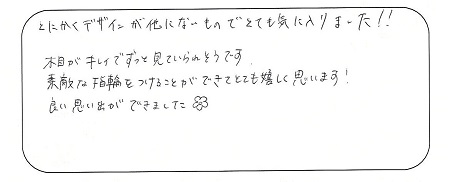 とにかくデザインが他にないものでとても気に入りました!!
木目がキレイでずっと見ていられそうです
素敵な指輪をつけることができてとても嬉しく思います!
良い思い出ができました